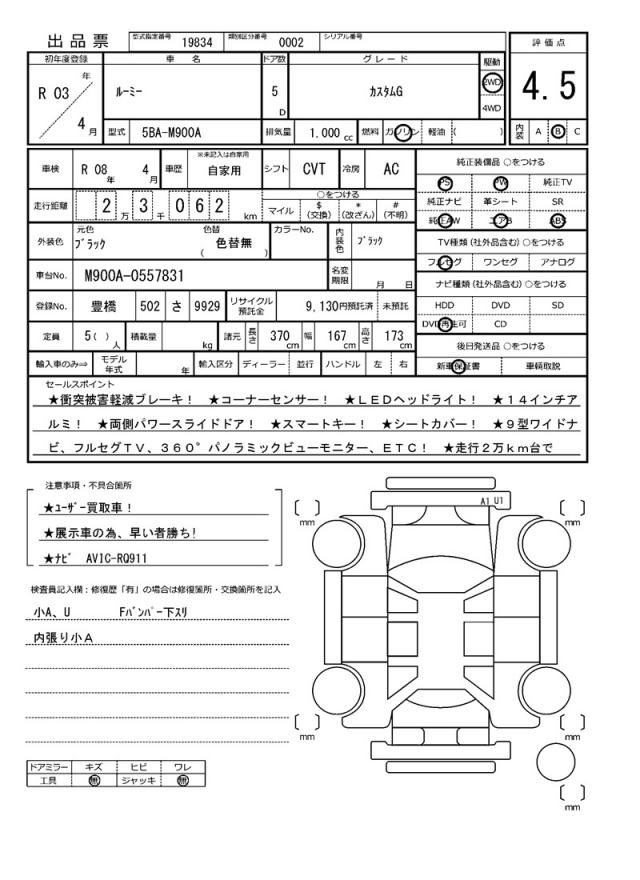 出品票
型式指定番号 19834 類別区分番号 0002 シリアル番号
初年度登録 車名 ドア数 グレード 駆動 評価点
R 03 年 4 月 ルーミー 5 D カスタムG 2WD 4WD 4.5
型式 5BA-M900A 排気量 1.000 cc 燃料 ガソリン 軽油 ( ) 内装 A B C
車検 R 08 年 4 月 車歴 ※未記入は自家用 自家用 シフト CVT 冷房 AC 純正装備品 ○をつける
PS PW 純正TV
走行距離 2 万 3 千 0 6 2 km ○をつける 純正ナビ 革シート SR
マイル $ (交換) * (改ざん) # (不明) 純正AW エアB ABS
外装色 元色 ブラック 色替 色替無 ( ) カラーNo. 内装色 ブラック TV種類(社外品含む) ○をつける
フルセグ ワンセグ アナログ
車台No. M900A-0557831 名変期限 月 日 ナビ種類(社外品含む) ○をつける
登録No. 豊橋 502 さ 9929 リサイクル預託金 9,130円預託済 未預託 HDD DVD SD
DVD再生可 CD
定員 5( ) 人 積載量 kg 諸元 長さ 370 cm 幅 167 cm 高さ 173 cm 後日発送品 ○をつける
輸入車のみ⇒ モデル年式 年 輸入区分 ディーラー 並行 ハンドル 左 右 新車保証書 車輌取説
セールスポイント
★衝突被害軽減ブレーキ! ★コーナーセンサー! ★LEDヘッドライト! ★14インチア
ルミ! ★両側パワースライドドア! ★スマートキー! ★シートカバー! ★9型ワイドナ
ビ、フルセグTV、360°パノラミックビューモニター、ETC! ★走行2万km台で
注意事項・不具合箇所
★ユーザー買取車!
★展示車の為、早い者勝ち!
★ナビ AVIC-RQ911
A1 U1
mm mm
検査員記入欄:修復歴「有」の場合は修復箇所・交換箇所を記入
小A、U Fバンパー下スリ
内張り小A
mm mm
ドアミラー キズ ヒビ ワレ
工具 無 ジャッキ 無
mm